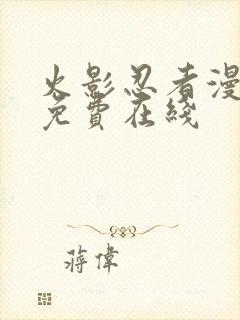 火影忍者漫
免費在綫
蔣偉